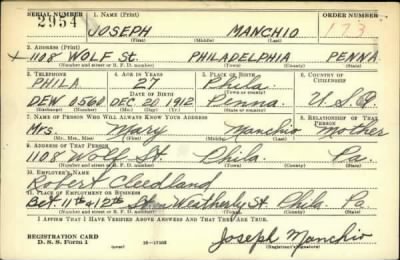 SERIAL NUMBER 1. NAME (Print) ORDER NUMBER
2954 JOSEPH MANCHIO 173
(First) (Middle) (Last)
2. ADDRESS (Print)
1108 WOLF St. PHILADELPHIA PENNA.
(Number and street or R. F. D. number) (Town) (County) (State)
3. TELEPHONE 4. AGE IN YEARS 5. PLACE OF BIRTH 6. COUNTRY OF CITIZENSHIP
PHILA 27 Phila.
DATE OF BIRTH (Town or county)
DEW 0560 DEC 20 1912 Penna. U.S.A.
(Exchange) (Number) (Mo.) (Day) (Yr.) (State or country)
7. NAME OF PERSON WHO WILL ALWAYS KNOW YOUR ADDRESS 8. RELATIONSHIP OF THAT PERSON
Mrs. Mary Manchio Mother
(Mr., Mrs., Miss) (First) (Middle) (Last)
9. ADDRESS OF THAT PERSON
1108 Wolf St. Phila. Pa.
(Number and street or R. F. D. number) (Town) (County) (State)
10. EMPLOYER'S NAME
Robert
11. PLACE OF EMPLOYMENT OR BUSINESS
Bet. 11th & 12th St. on Weatherly St. Phila. Pa.
(Number and street or R. F. D. number) (Town) (County) (State)
I AFFIRM THAT I HAVE VERIFIED ABOVE ANSWERS AND THAT THEY ARE TRUE.
REGISTRATION CARD
D. S. S. Form 1 (over) Joseph Manchio
(Registrant's signature)